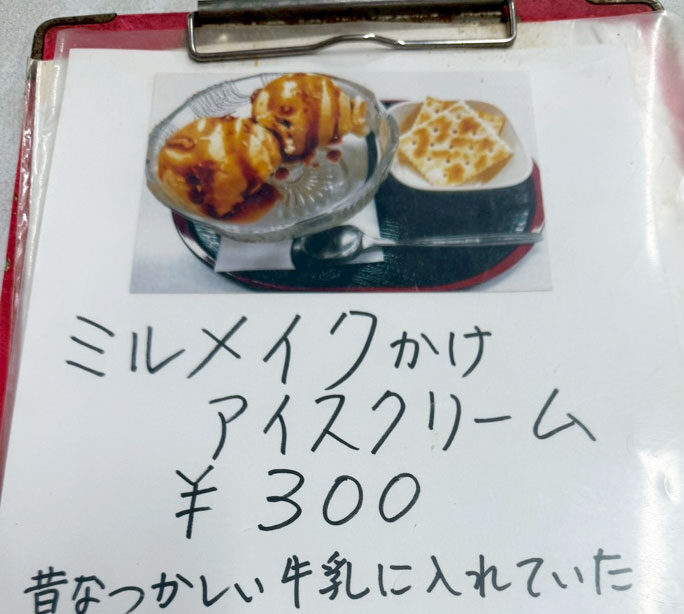 ミルメイクかけ
アイスクリーム
¥300
昔なつかしい牛乳に入れていた